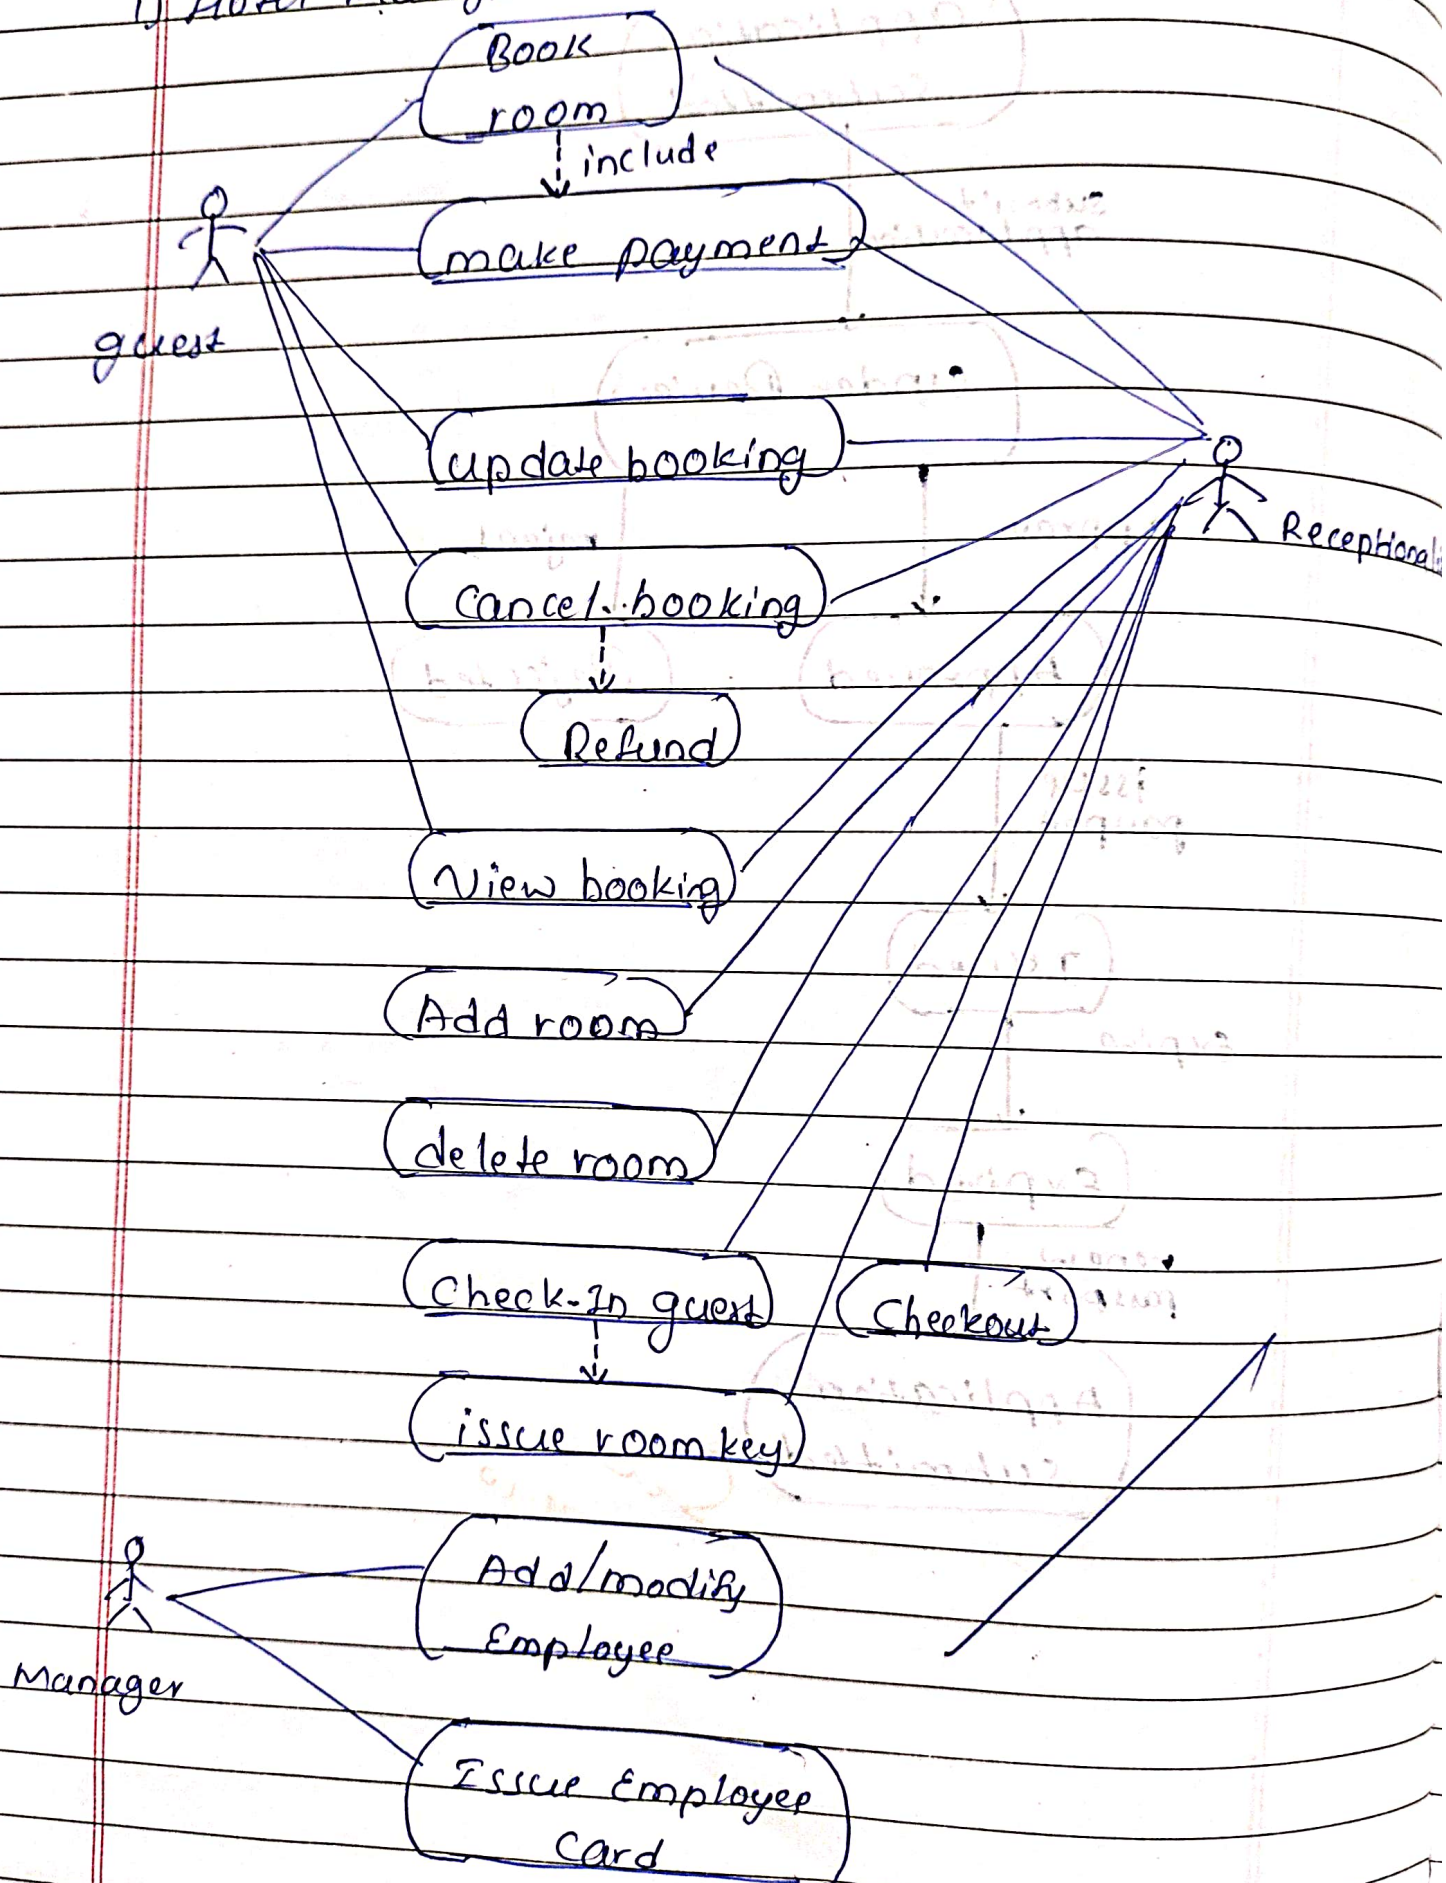 Book
room
include
make payment
guest
update booking
Receptional
cancel booking
Refund
View booking
Add room
delete room
Check-In guest
Checkout
issue room key
Add/modify
Employee
Manager
Issue Employee
Card